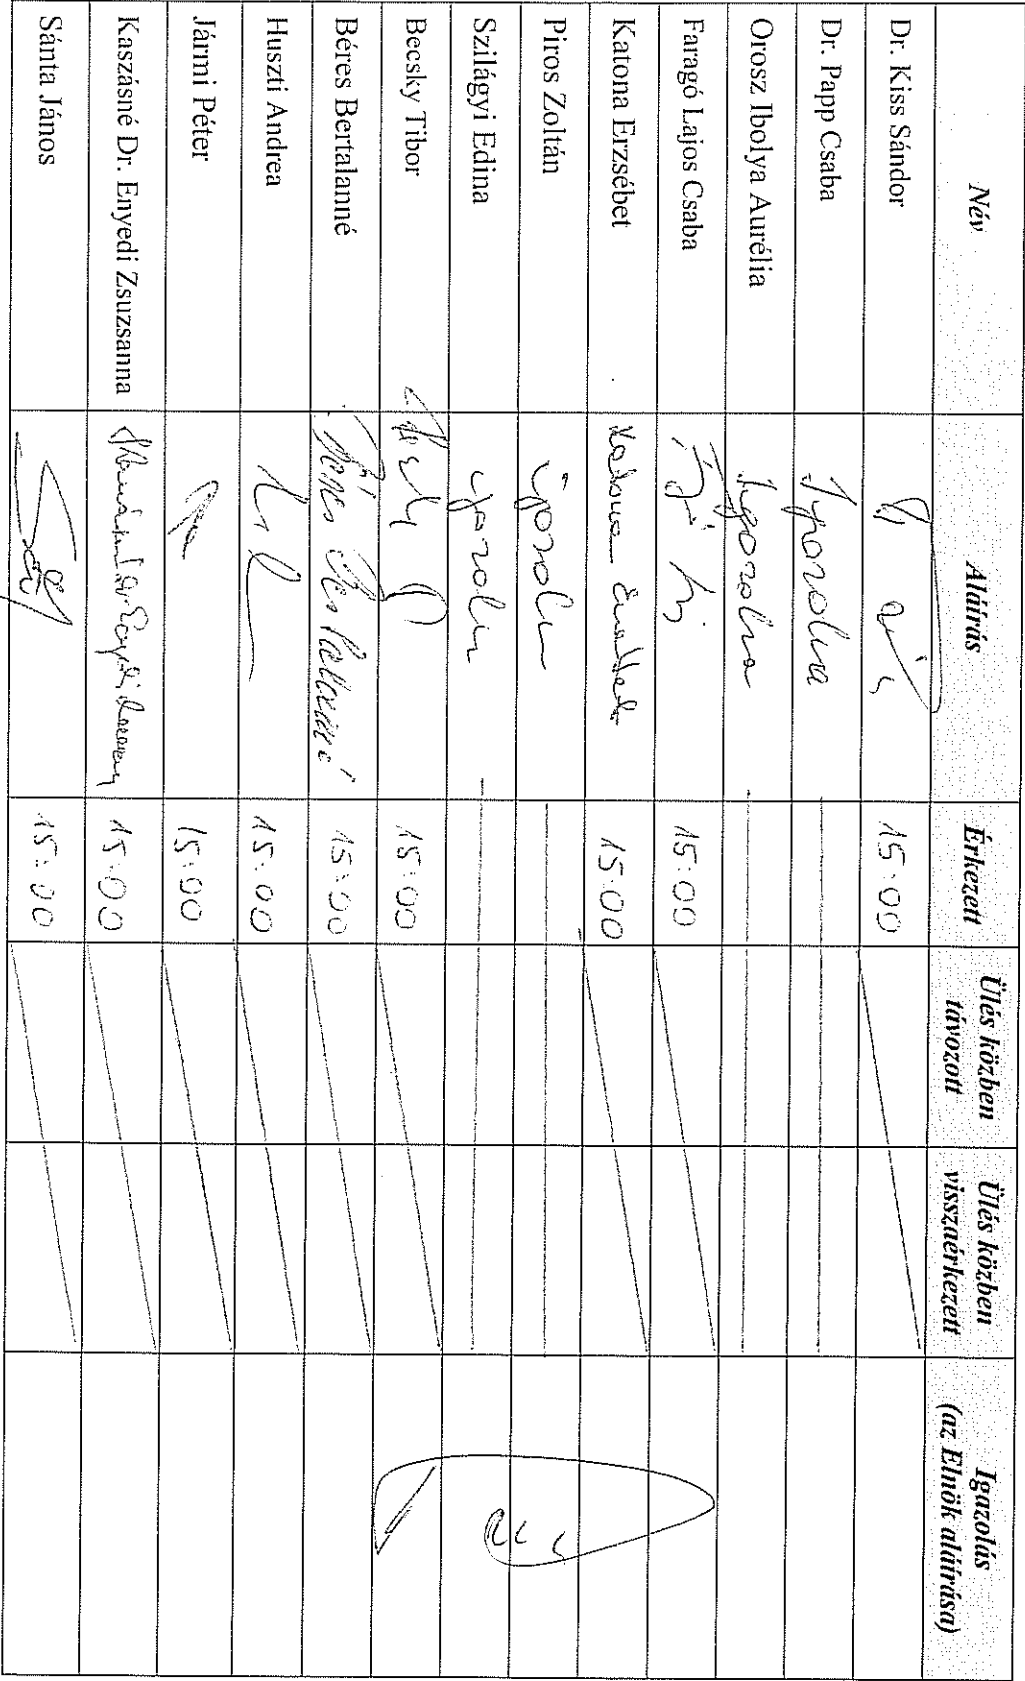 Név Aláírás Érkezett Ülés közben távozott Ülés közben visszaérkezett Igazolás (az Elnök aláírása)
Dr. Kiss Sándor 15:00
Dr. Papp Csaba Igazolva
Orosz Ibolya Aurélia Igazolva
Faragó Lajos Csaba 15:00
Katona Erzsébet Katona Erzsébet 15:00
Piros Zoltán igazolva
Szilágyi Edina igazolva
Becsky Tibor 15:00
Béres Bertalanné Béres Bertalanné 15:00
Huszti Andrea 15:00
Jármi Péter 15:00
Kaszásné Dr. Enyedi Zsuzsanna 15:00
Sánta János 15:00